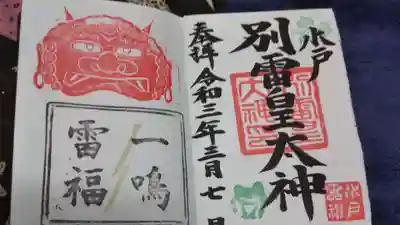 水戸
別雷皇太神
奉拝 令和三年三月七日
別雷皇太神
一鳴
雷福